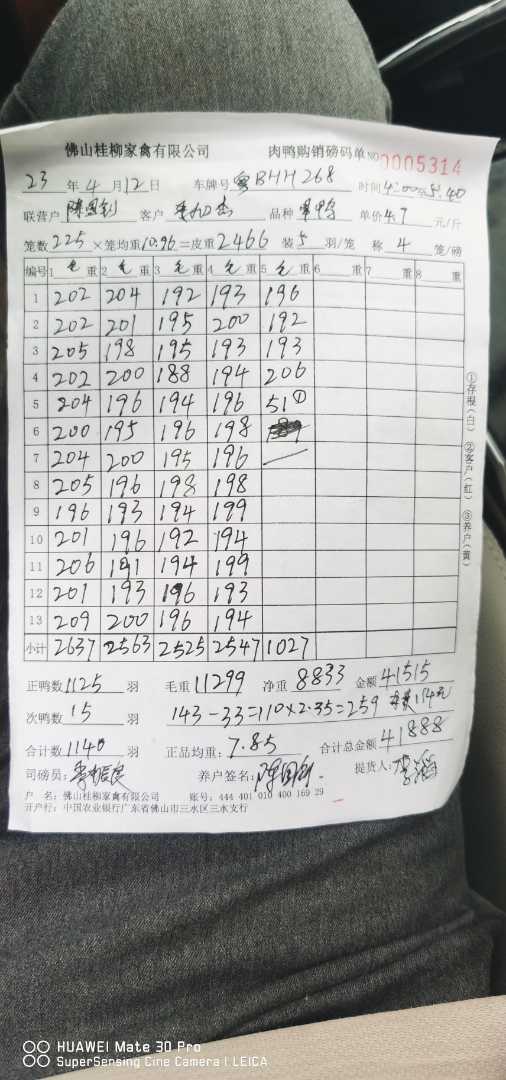 佛山桂柳家禽有限公司 肉鸭购销磅码单 NO 0005314
23 年 4 月 12 日 车牌号 粤BHH268 时间 4:00 5:40
联营户 客户 品种 单价 4.7 元/斤
笼数 225 ×笼均重 10.96 =皮重 2466 装 5 羽/笼 称 4 笼/磅
编号 1 毛 重 2 毛 重 3 毛 重 4 毛 重 5 毛 重 6 重 7 重 8 重
1 202 204 192 193 196
2 202 201 195 200 192
3 205 198 195 193 193
4 202 200 188 194 206
5 204 196 194 196 51①
6 200 195 196 198
7 204 200 195 196
8 205 196 198 198
9 196 193 194 199
10 201 196 192 194
11 206 191 194 199
12 201 193 196 193
13 209 200 196 194
小计 2637 2563 2525 2547 1027
①存根(白) ②客户(红) ③养户(黄)
正鸭数 1125 羽 毛重 11299 净重 8833 金额 41515
次鸭数 15 羽 143-33=110×2.35=259 114元
合计数 1140 羽 正品均重: 7.85 合计总金额 41888
司磅员: 养户签名: 提货人:
户 名: 佛山桂柳家禽有限公司 账号: 444 401 010 400 169 29
开户行: 中国农业银行广东省佛山市三水区三水支行
HUAWEI Mate 30 Pro
SuperSensing Cine Camera | LEICA